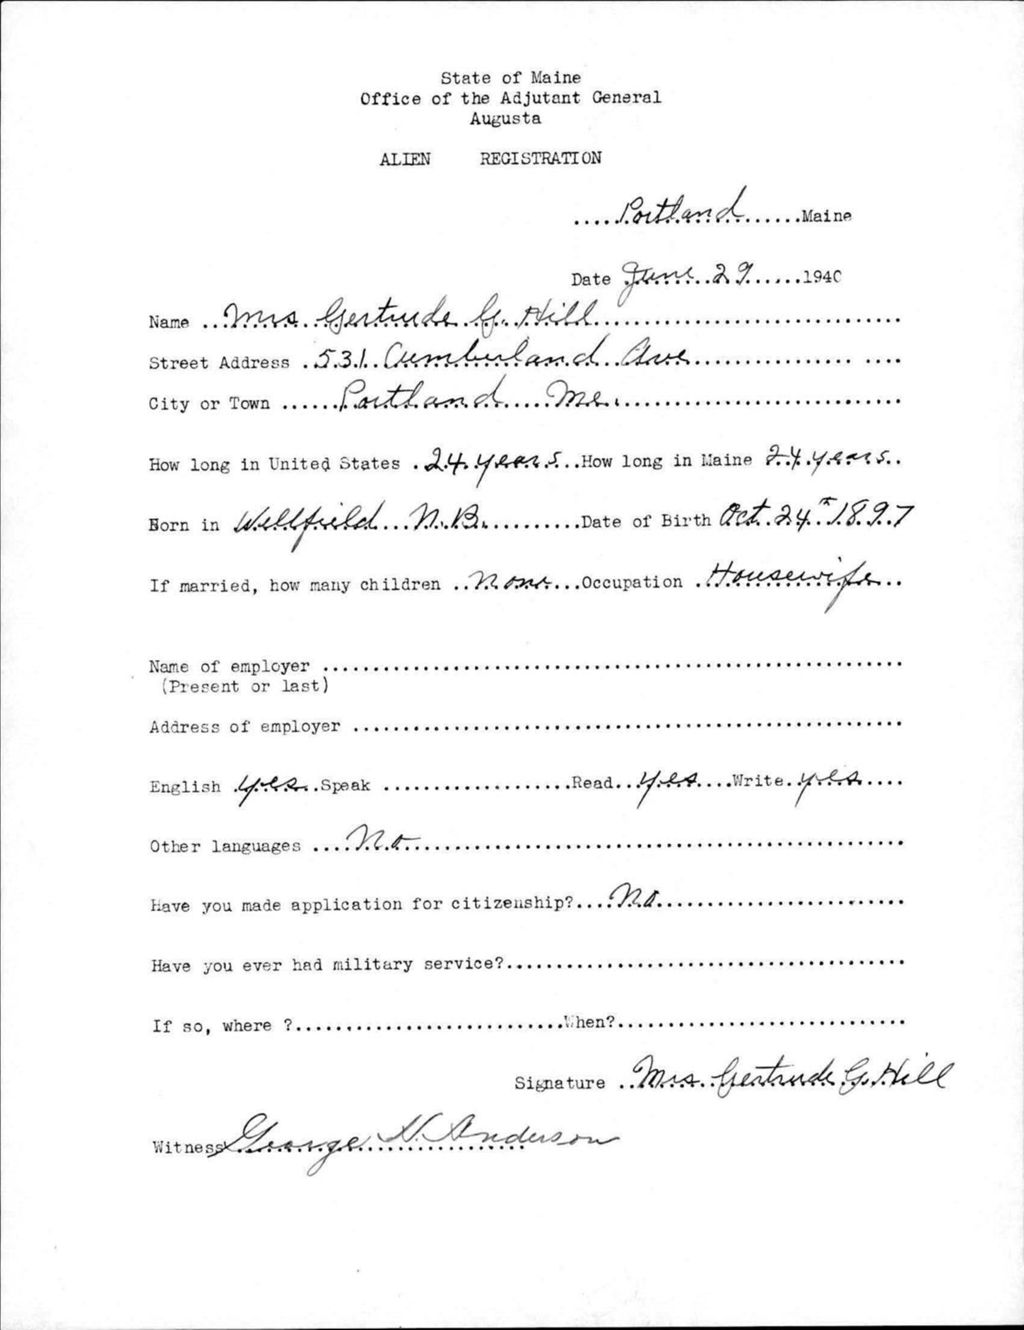 State of Maine
Office of the Adjutant General
Augusta
ALIEN REGISTRATION
.....Portland.......Maine
Date June 29......1940
Name ..Mrs. Gertrude G. Hill...............................
Street Address .531 Cumberland Ave............... ....
City or Town ......Portland....Me..............................
How long in United States .24 years..How long in Maine 24 years..
Born in Wellfield...N.B............Date of Birth Oct. 24th 1897
If married, how many children ..None...Occupation .Housewife..
Name of employer ................................................................
(Present or last)
Address of employer ............................................................
English .yes..Speak ....................Read..yes....Write.yes.....
Other languages ....No......................................................
Have you made application for citizenship?....No...........................
Have you ever had military service?............................................
If so, where ?..............................When?................................
Signature ..Mrs. Gertrude G. Hill
Witness George N. Anderson